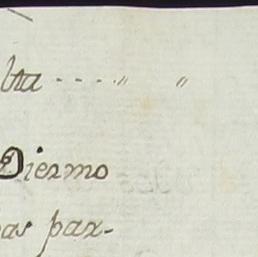 bta - - - - " "
Diezmo
as par-